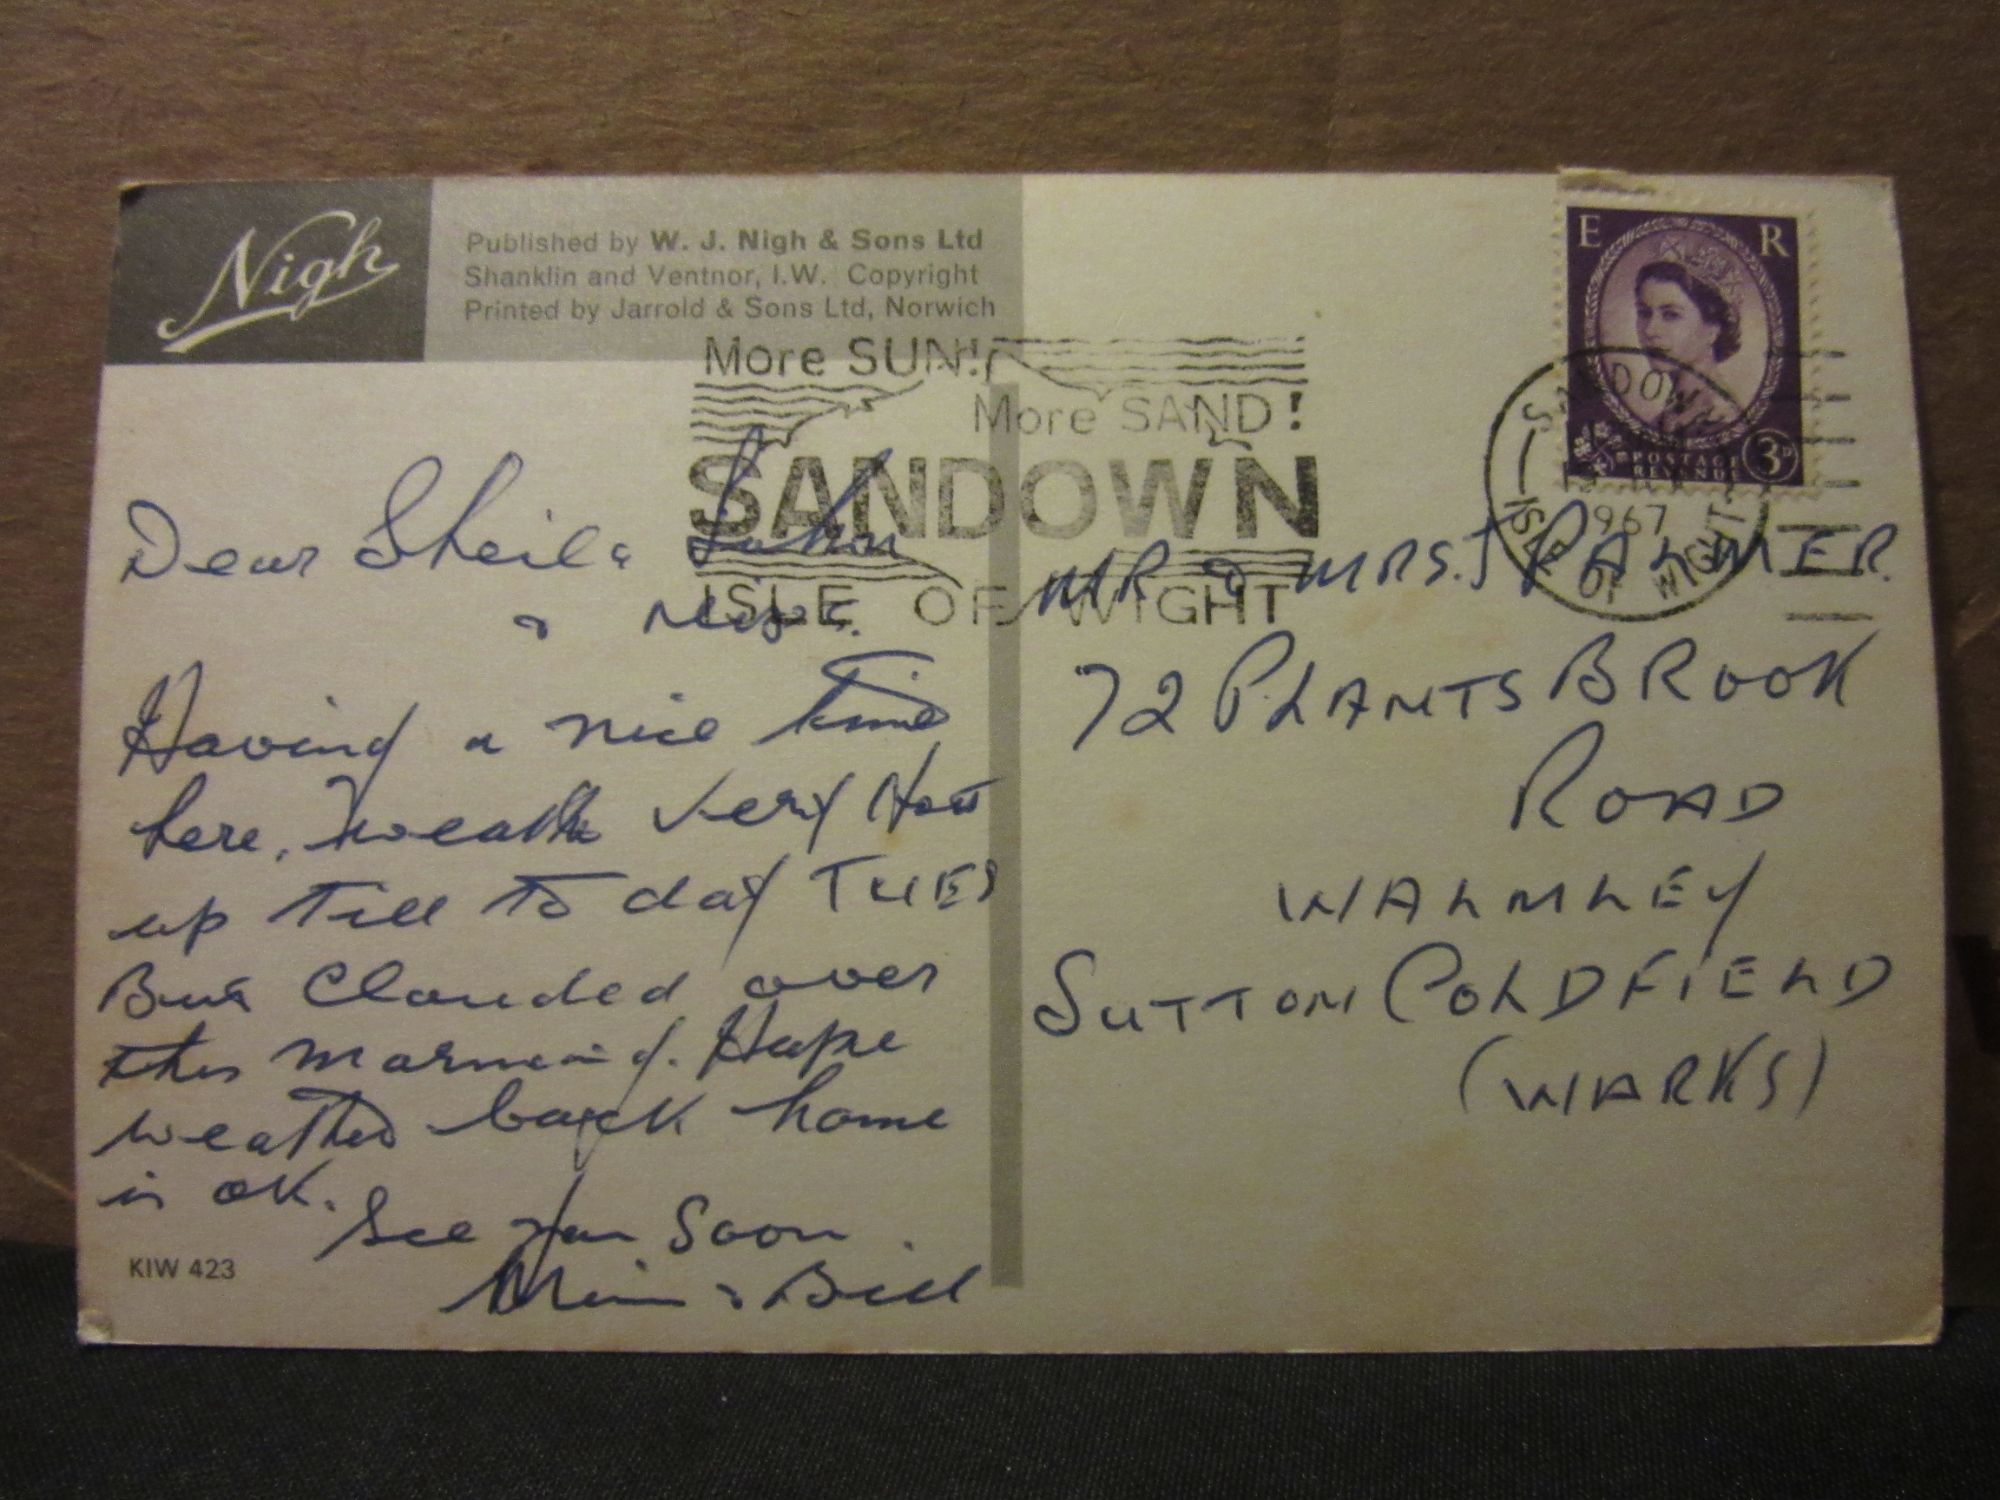 Nigh
Published by W. J. Nigh & Sons Ltd
Shanklin and Ventnor, I.W. Copyright
Printed by Jarrold & Sons Ltd, Norwich
More SUN!
More SAND!
SANDOWN
ISLE OF WIGHT
E R
POSTAGE
REVENUE
3D
SANDOWN
1967
ISLE OF WIGHT
Dear Sheila John
&
Having a nice time
here, weather very Hot
up till to day TUES
But Clouded over
this morning. Hope
weather back home
is OK.
See you Soon
& Bill
KIW 423
MR & MRS. J PALMER.
72 PLANTSBROOK
ROAD
WALMLEY
SUTTON COLDFIELD
(WARKS)